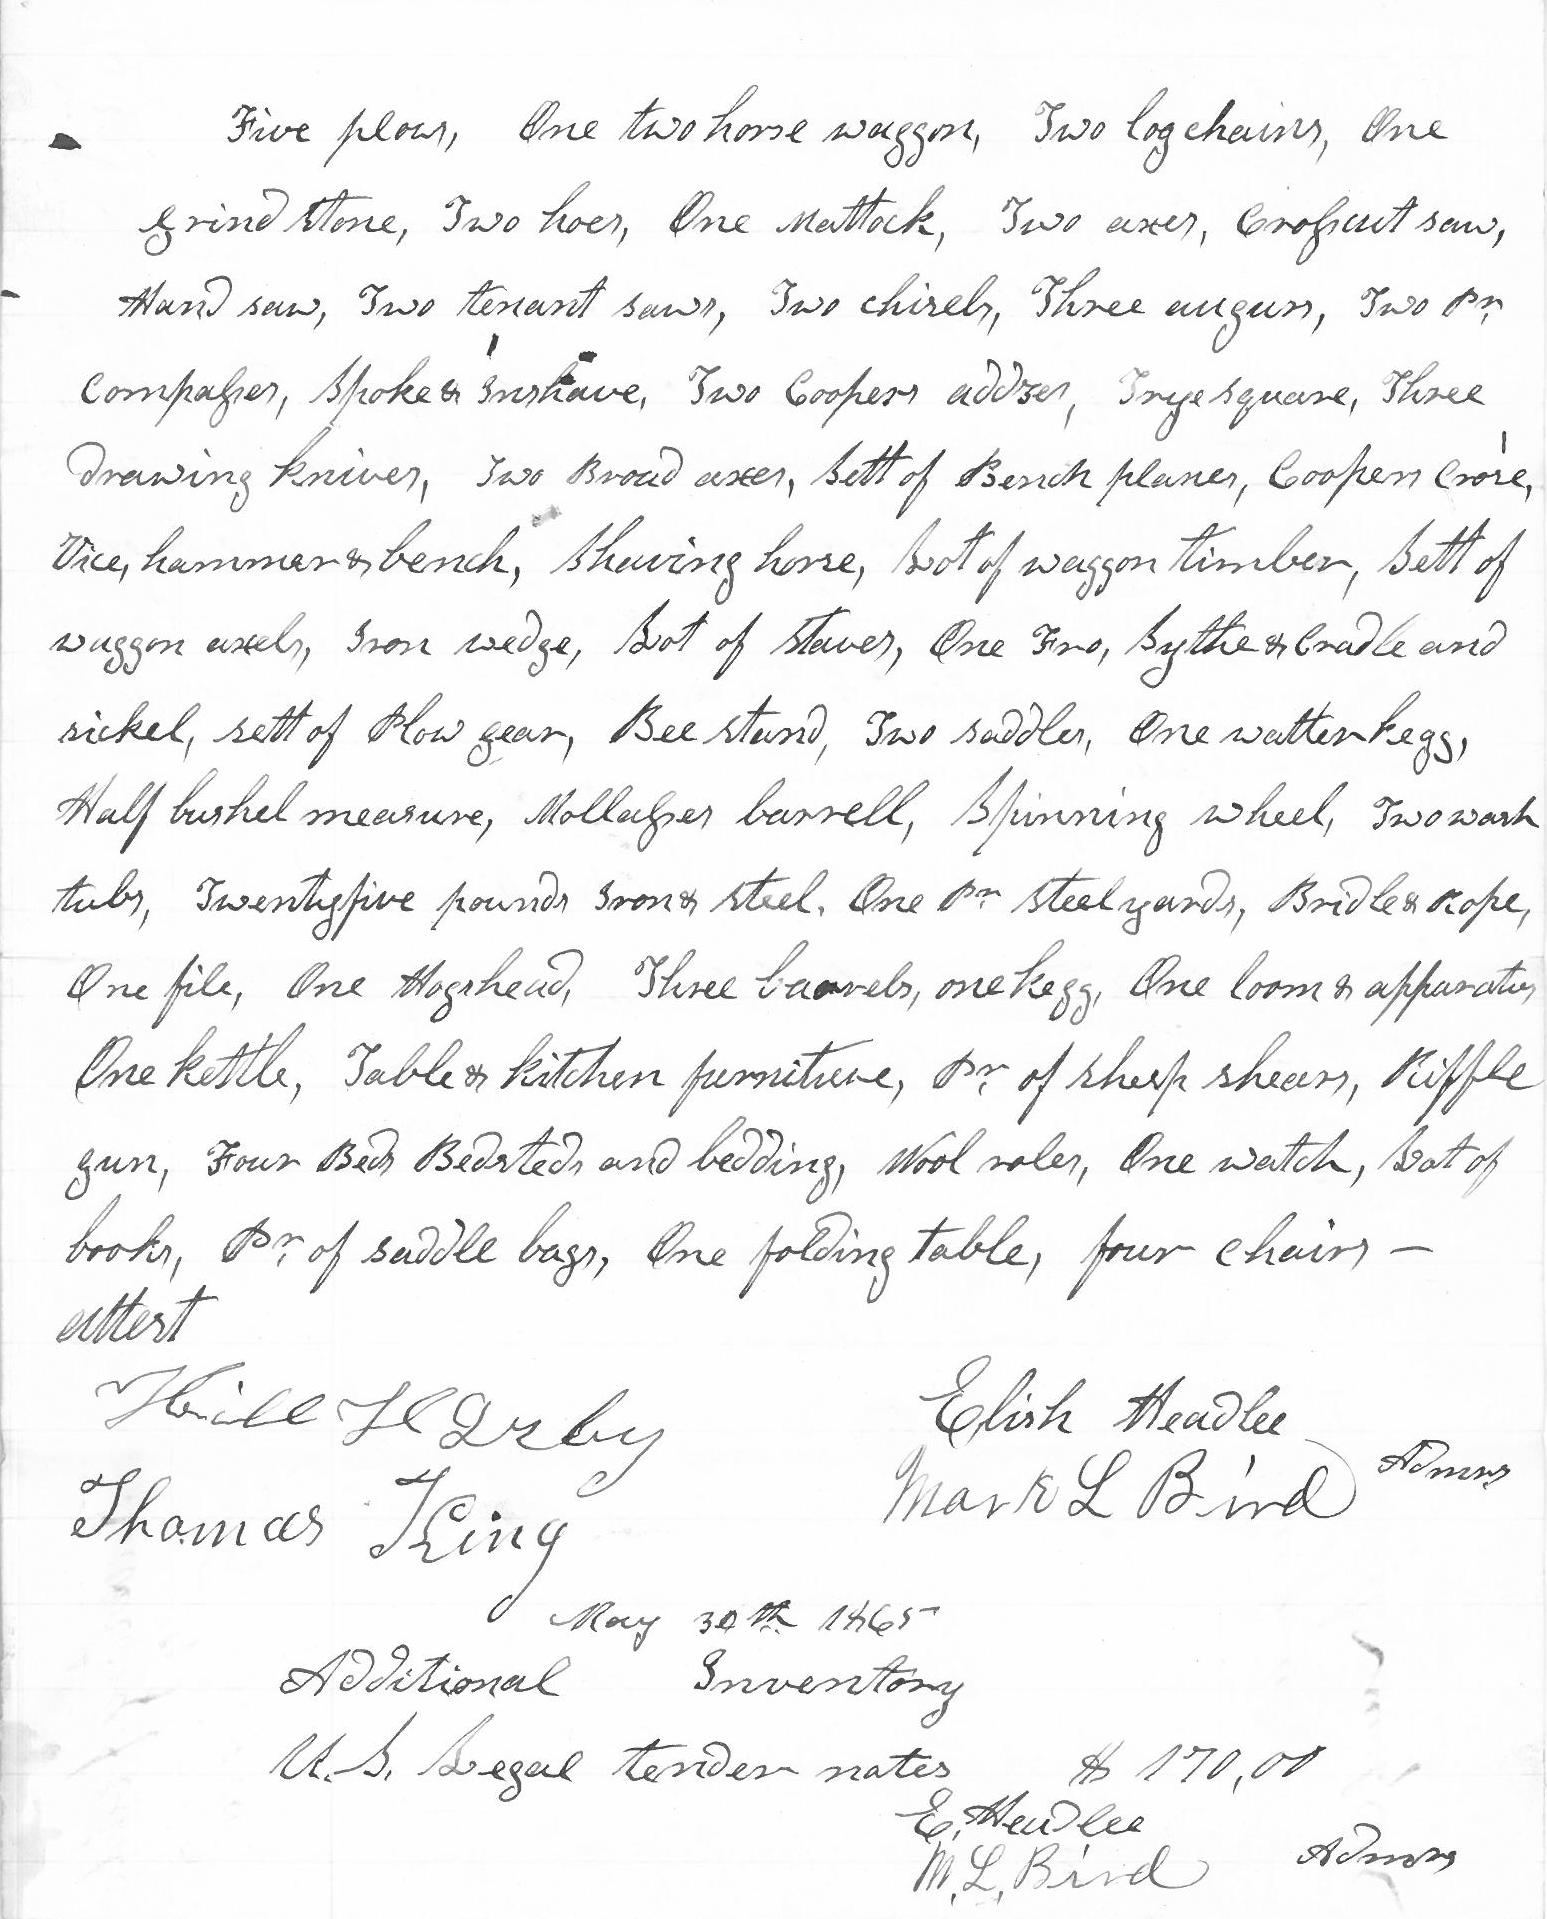 Five plows, One two horse waggon, Two log chains, One
grind stone, Two hoes, One Mattock, Two axes, Crosscut saw,
Hand saw, Two tenant saws, Two chisels, Three augurs, Two Pr
Compasses, Spoke & Inshave, Two Coopers addzes, Trye square, Three
drawing knives, Two Broad axes, Sett of Bench planes, Coopers Crose,
Vice, hammer & bench, Shaving horse, Lot of waggon timber, Sett of
waggon axels, Iron wedge, Lot of Staves, One Fro, Sythe & Cradle and
sickel, sett of Plow gear, Bee stand, Two saddles, One watter kegg,
Half bushel measure, Mollasses barrell, Spinning wheel, Two wash
tubs, Twentyfive pounds Iron & Steel. One Pr Steelyards, Bridle & Rope,
One file, One Hogshead, Three barrels, one kegg, One loom & apparatus
One kettle, Table & kitchen furniture, Pr of sheep shears, Riffle
gun, Four Beds Bedsteds and bedding, Wool roles, One watch, Lot of
books, Pr of saddle bags, One folding table, four chairs —
Attest
Thomas King
Elish Headlee
Mark L Bird Admrs
May 30th 1865
Additional Inventory
U.S. Legal tender notes $ 170,00
E. Headlee
M. L. Bird Admrs